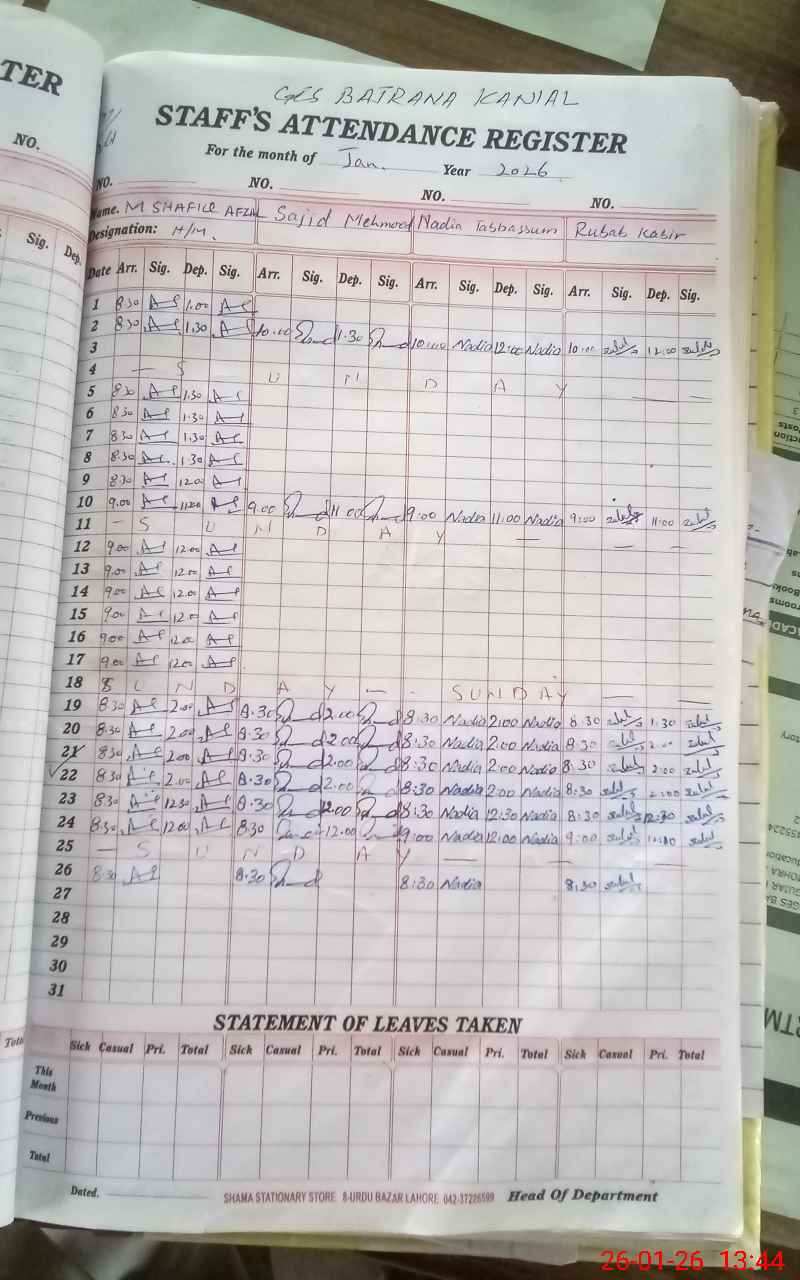 TER
NO.
Sig. Dep.
GES BATRANA KANIAL
STAFF'S ATTENDANCE REGISTER
For the month of Jan. Year 2026
NO. NO. NO. NO.
Name. M SHAFIQ AFZAL Sajid Mehmood Nadia Tabbassum Rubab Kabir
Designation: H/M.
Date Arr. Sig. Dep. Sig. Arr. Sig. Dep. Sig. Arr. Sig. Dep. Sig. Arr. Sig. Dep. Sig.
1 8.30 1.00
2 8.30 1.30 10.00 1.30 10:00 Nadia 12:00 Nadia 10:00 12:00
3
4 — S U N D A Y
5 8.30 1.30
6 8.30 1.30
7 8.30 1.30
8 8.30 1.30
9 8.30 12.00
10 9.00 11.00 9.00 11.00 9:00 Nadia 11:00 Nadia 9:00 11:00
11 – S U N D A Y —
12 9.00 12.00
13 9.00 12.00
14 9.00 12.00
15 9.00 12.00
16 9.00 12.00
17 9.00 12.00
18 S U N D A Y — - SUNDAY
19 8.30 2.00 8.30 2.00 8:30 Nadia 2:00 Nadia 8:30 1:30
20 8.30 2.00 8.30 2.00 8:30 Nadia 2:00 Nadia 8:30 2:00
21 8.30 2.00 8.30 2.00 8:30 Nadia 2:00 Nadia 8:30 2:00
22 8.30 2.00 8.30 2.00 8:30 Nadia 2:00 Nadia 8:30 2:00
23 8.30 12.30 8.30 12.00 8:30 Nadia 12:30 Nadia 8:30 12:30
24 8.30 12.00 8.30 12.00 9:00 Nadia 12:00 Nadia 9:00
25 — S U N D A Y —
26 8.30 8.30 8:30 Nadia 8:30
27
28
29
30
31
STATEMENT OF LEAVES TAKEN
Sick Casual Pri. Total Sick Casual Pri. Total Sick Casual Pri. Total Sick Casual Pri. Total
This Month
Previous
Total
Dated.
SHAMA STATIONARY STORE 8-URDU BAZAR LAHORE 042-37226599 Head Of Department
26-01-26 13:44